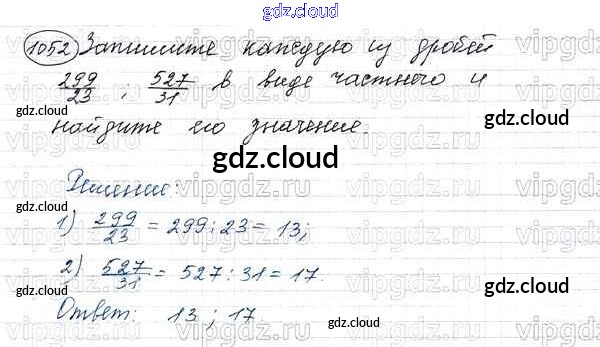 gdz.cloud
1052 Запишите каждую из дробей
299/23 ; 527/31 в виде частного и
найдите его значение.
gdz.cloud
gdz.cloud
gdz.cloud
gdz.cloud
Решение:
1) 299/23 = 299 : 23 = 13;
2) 527/31 = 527 : 31 = 17.
Ответ: 13 ; 17.
gdz.cloud
gdz.cloud
gdz.cloud
vipgdz.ru